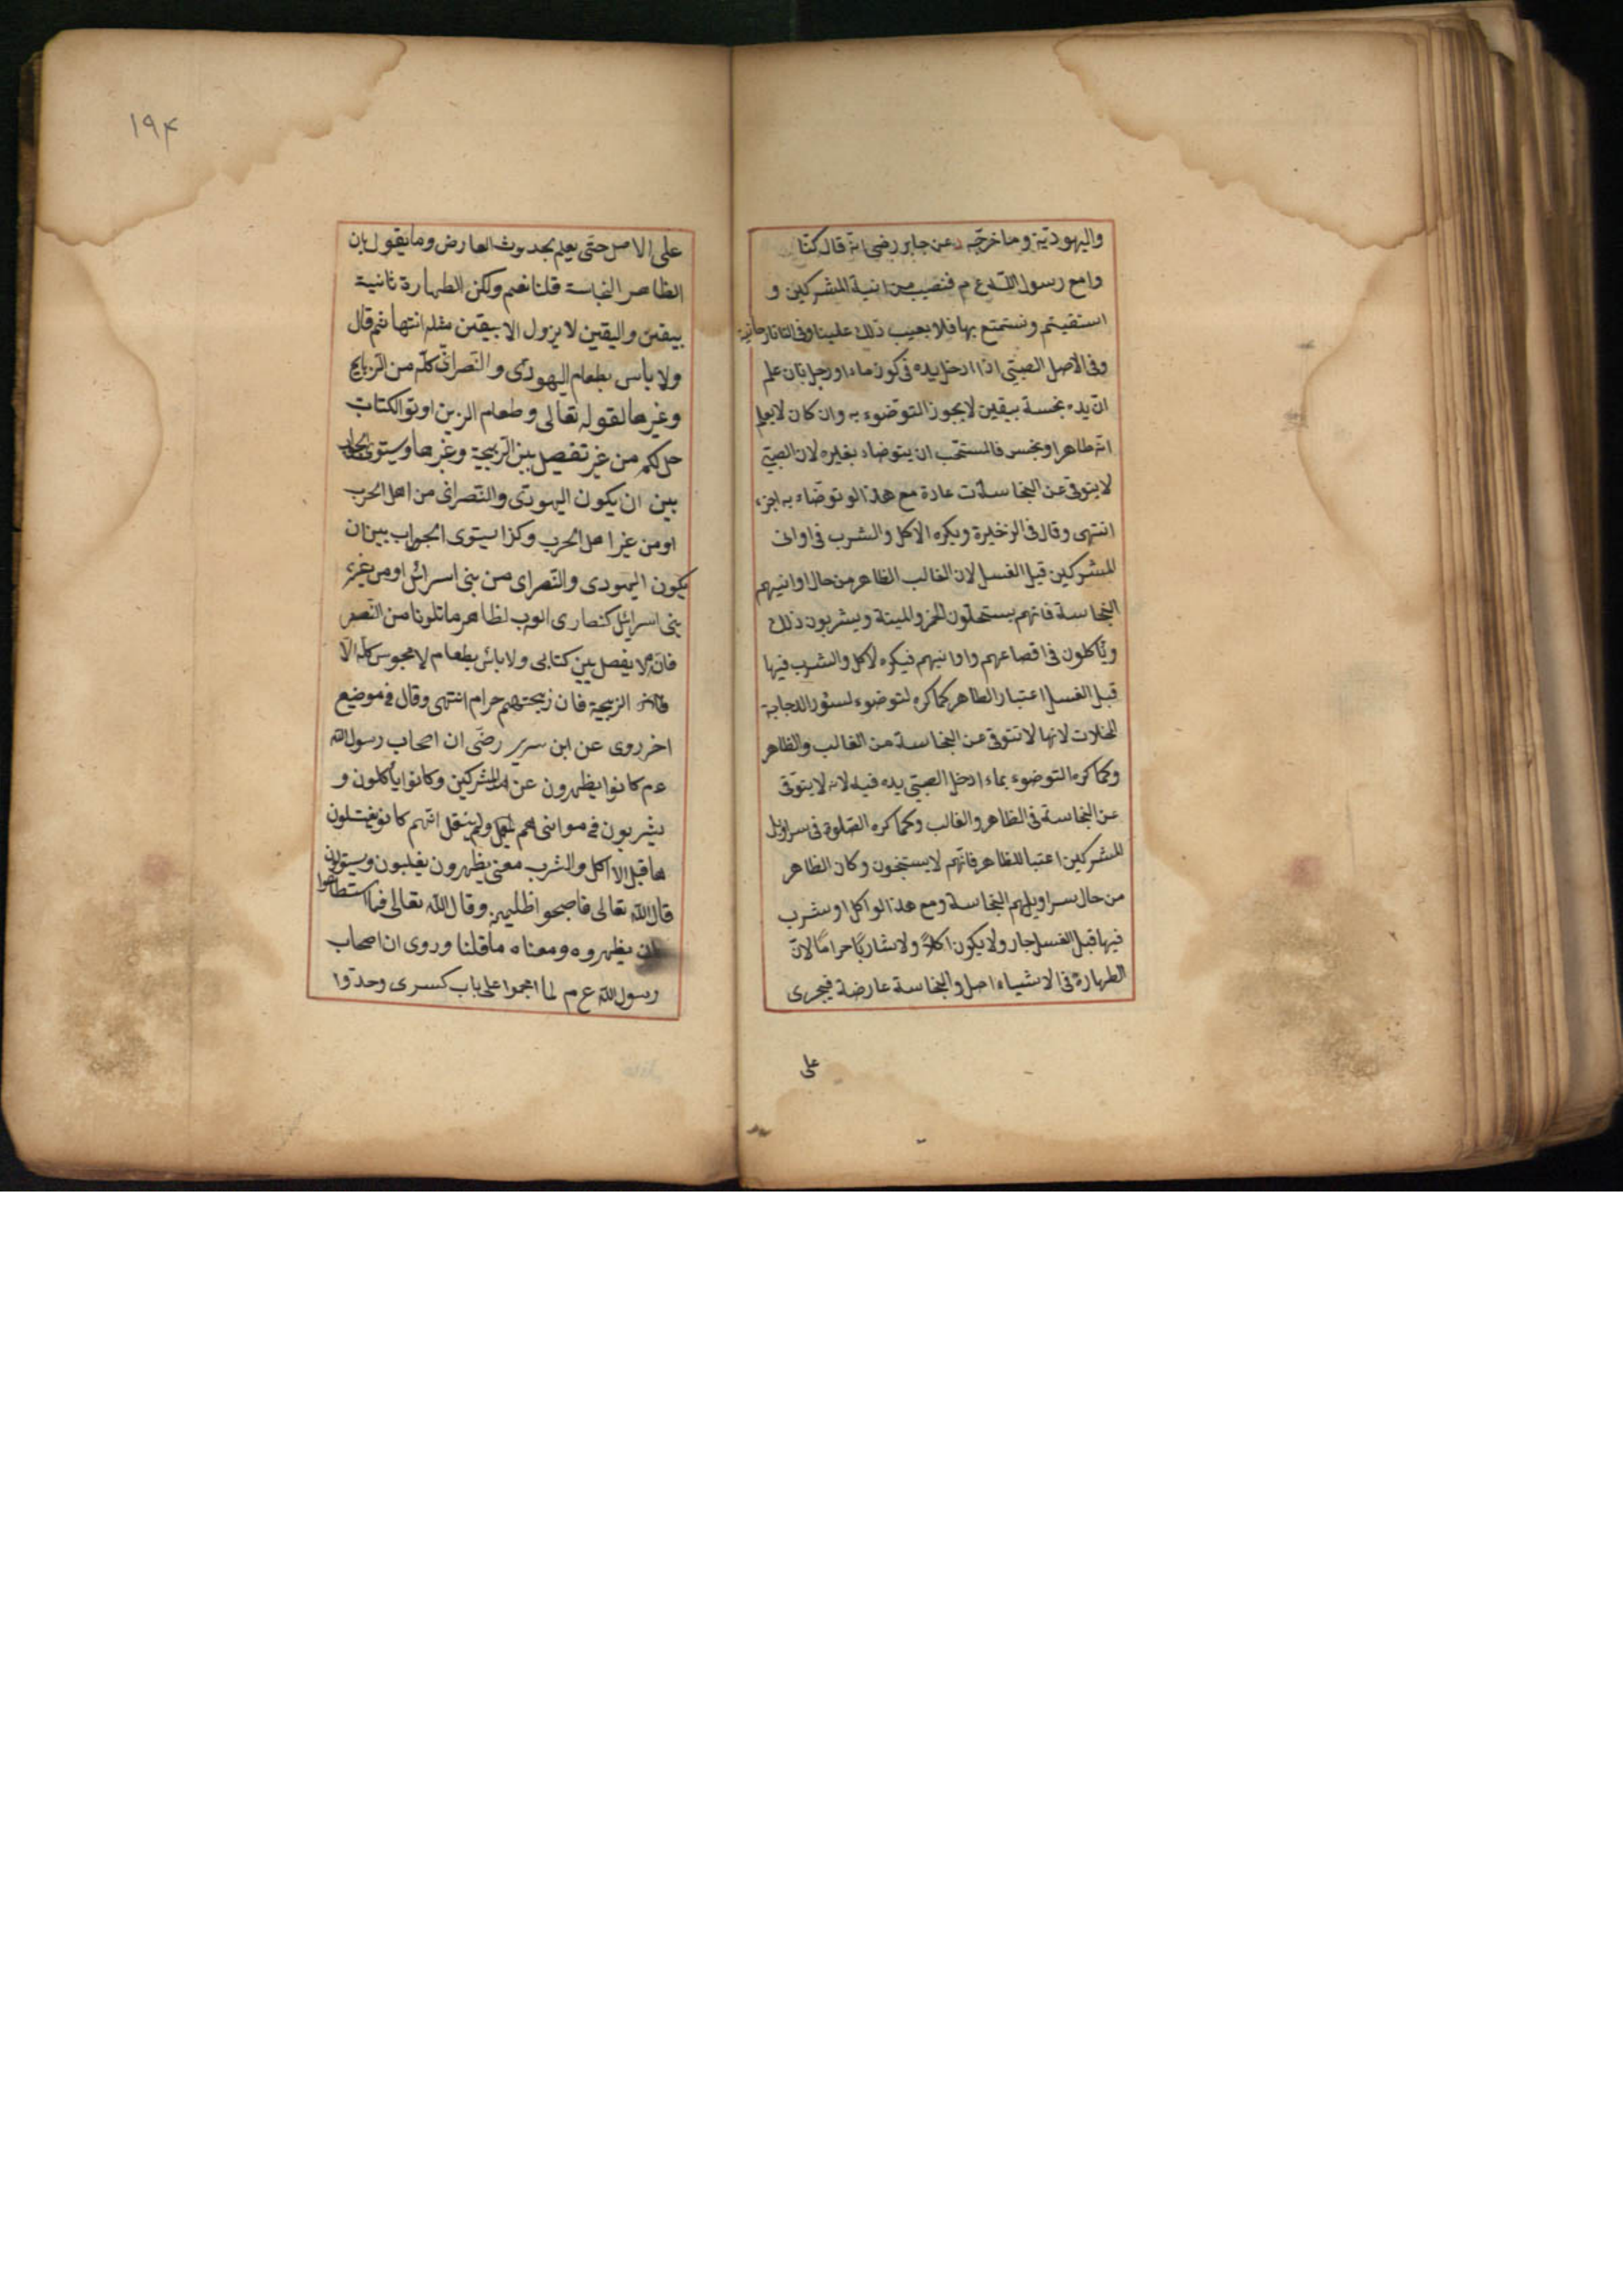 واليهودية وما خرجه د عن جابر رضى انه قال كنا
وامع رسول الله ع م فنصيب من انية المشركين و
استقيتهم ونستمتع بها فلا يعيب ذلك علينا وفى التاتارخانية
وفى الاصل الصبى اذا ادخل يده فى كوز ماء او رجل بان علم
ان يده نجسة بيقين لا يجوز التوضوء به وان كان لا يعلم
انه طاهر او نجس فالمستحب ان يتوضاء بغيره لان الصبى
لا يتوقى عن النجاسات عادة مع هذا لو توضاء به اجزء
انتهى وقال فى الزخيرة ويكره الاكل والشرب فى اوانى
المشركين قبل الغسل لان الغالب الظاهر من حال اوانيهم
النجاسة فانهم يستحلون الخمر والميتة ويشربون ذلك
وياكلون فى اقصاعهم واوانيهم فيكره لاكل والشرب فيها
قبل الغسل اعتبار الظاهر كما كره لتوضوء لسئور الدجاجة
المخلات لانها لا تتوقى عن النجاسة من الغالب والظاهر
وكما كره التوضوء بماء ادخل الصبى يده فيه لانه لا يتوقى
عن النجاسة فى الظاهر والغالب وكما كره الصلوة فى سراويل
المشركين اعتبا للظاهر فانهم لا يستنجون وكان الظاهر
من حال سراويلهم النجاسة ومع هذا لو اكل او شرب
فيها قبل الغسل جار ولا يكون اكلا ولا شاربا حراما لان
الطهارة فى الاشياء اصل والنجاسة عارضة فيجرى
على
١٩٤
على الاصل حتى يعلم بحدوث العارض وما يقول بان
الظاهر النجاسة قلنا نعم ولكن الطهارة ثانية
بيقين واليقين لا يزول الا بيقين مثله انتها ثم قال
ولا باس بطعام اليهودى والنصرانى كله من الزبايح
وغيرها لقوله تعالى وطعام الزين اوتو الكتاب
حل لكم من غير تفصيل بين الزبيحة وغيرها ويستوى الجواب
بين ان يكون اليهودى والنصرانى من اهل الحرب
او من غير اهل الحرب وكزا يستوى الجواب بين ان
يكون اليهودى والنصراى من بنى اسرائل او من غير
بنى اسرائل كنصارى العرب لظاهر ما تلونا من النص
فانه لا يفصل بين كتابى ولا بائس بطعام لا مجوس كله الا
الزبيحة فان زبيحتهم حرام انتهى وقال فى موضيع
اخر روى عن ابن سرير رضى ان اصحاب رسول الله
ع م كانوا يظهرون عن المشركين وكانوا ياكلون و
يشربون فى موانى هم ولم ينقل انهم كانو يغتسلون
ها قبل الا اكل والشرب معنى يظهرون يغلبون ويستولون
قال الله تعالى فاصبحوا ظلهرين وقال الله تعالى فما استطاعوا
ان يظهروه ومعناه ما قلنا وروى ان اصحاب
رسول الله ع م لما اعجموا على باب كسرى وحدوا